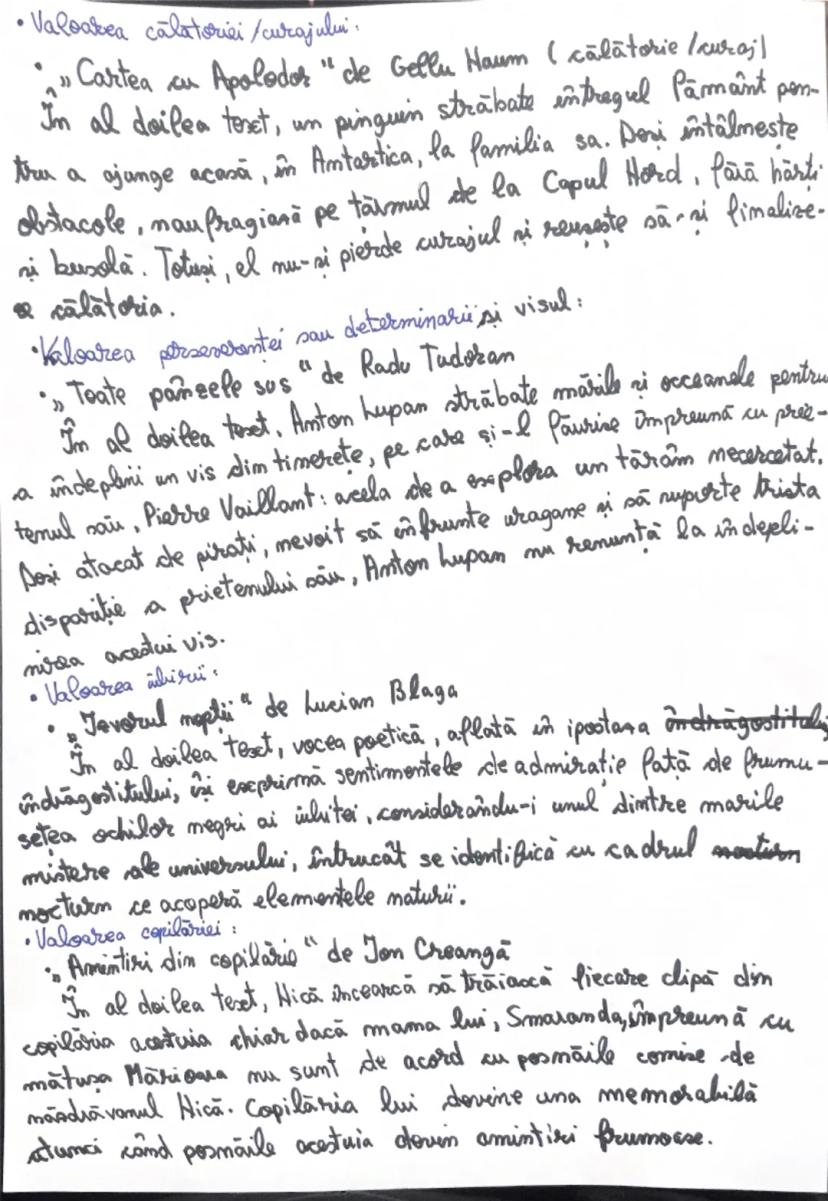 • Valoarea călătoriei/curajului:
• „Cartea cu Apolodor“ de Gellu Naum (călătorie/curaj)
În al doilea text, un pinguin străbate întregul Pământ pen-
tru a ajunge acasă, în Antartica, la familia sa. Deși întâlmește
obstacole, naufragiază pe tărmul de la Capul Hord, fără hărți
și busolă. Totuși, el nu-și pierde curajul și reușește să-și finalize-
ze călătoria.
• Valoarea perseverenței sau determinarii și visul:
• „Toate pânzele sus“ de Radu Tudoran
În al doilea text, Anton Lupan străbate mările și occeanele pentru
a îndeplini un vis din tinerețe, pe care și-l făurise împreună cu prie-
tenul său, Pierre Vaillant: acela de a explora un tărâm necercetat.
Deși atacat de pirați, nevoit să înfrunte uragane și să suporte trista
dispariție a prietenului său, Anton Lupan nu renunță la îndepli-
nirea acestui vis.
• Valoarea iubirii:
• „Izvorul nopții“ de Lucian Blaga
În al doilea text, vocea poetică, aflată în ipostaza îndrăgostitului
îndrăgostitului, își exprimă sentimentele de admirație față de frumu-
setea ochilor negri ai iubitei, considerându-i unul dintre marile
mistere ale universului, întrucât se identifică cu cadrul nocturn
nocturn ce acoperă elementele naturii.
• Valoarea copilăriei:
• „Amintiri din copilărie“ de Ion Creangă
În al doilea text, Nică încearcă să trăiască fiecare clipă din
copilăria acestuia chiar dacă mama lui, Smaranda, împreună cu
mătușa Mărioara nu sunt de acord cu poznăile comise de
năzdrăvanul Nică. Copilăria lui devine una memorabilă
atunci când poznăile acestuia devin amintiri frumoase.